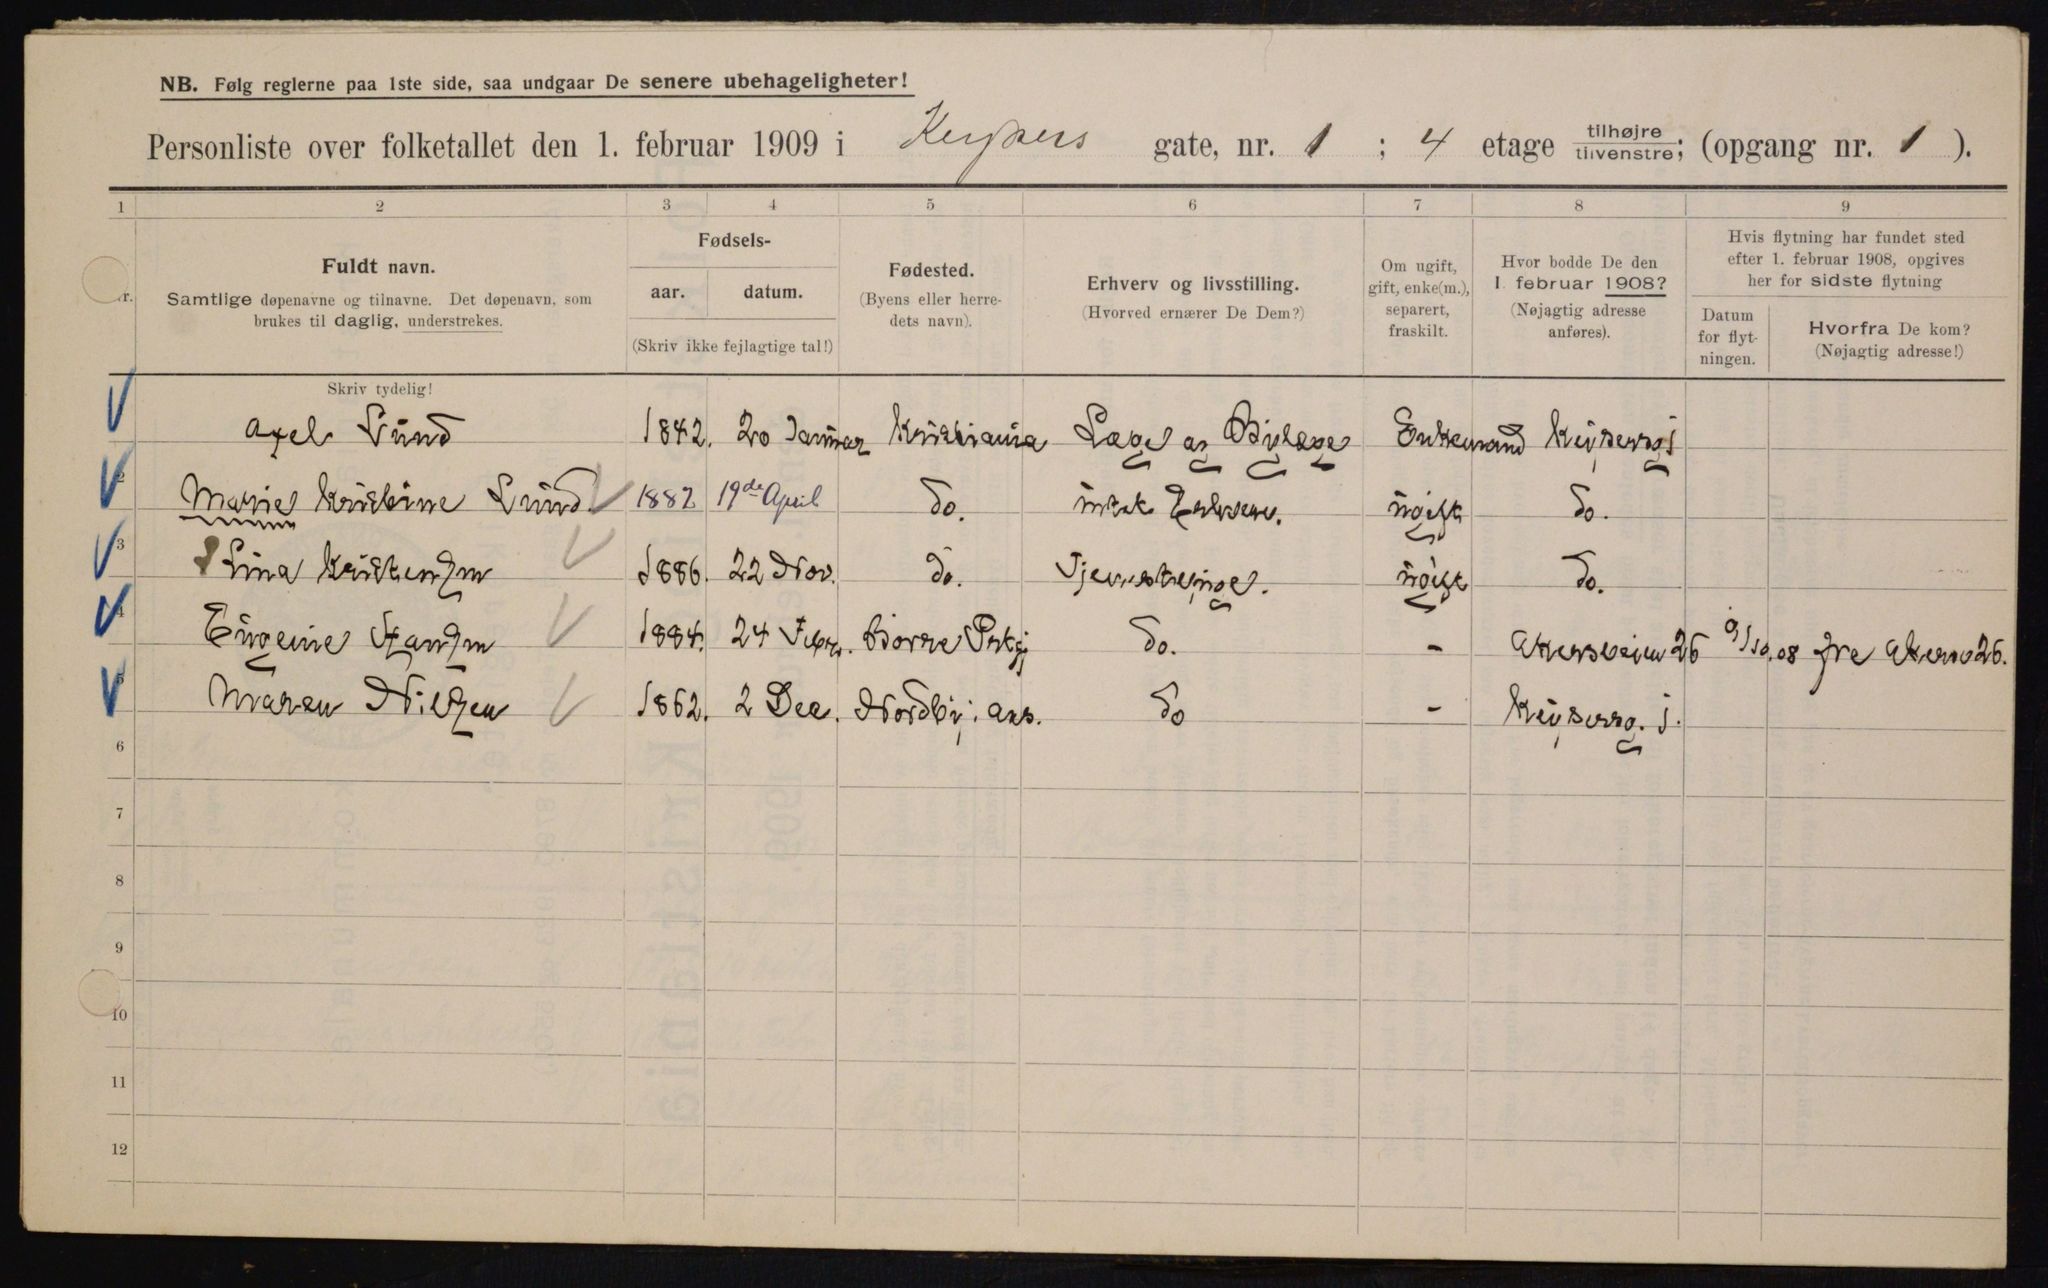 NB. Følg reglerne paa 1ste side, saa undgaar De senere ubehageligheter!
Personliste over folketallet den 1. februar 1909 i Keysers gate, nr. 1 ; 4 etage tilhøjre tilvenstre; (opgang nr. 1 ).
1 2 3 4 5 6 7 8 9
Fuldt navn.
Samtlige døpenavne og tilnavne. Det døpenavn, som
brukes til daglig, understrekes.
Skriv tydelig!
Fødsels-
aar. datum.
(Skriv ikke fejlagtige tal!)
Fødested.
(Byens eller herre-
dets navn).
Erhverv og livsstilling.
(Hvorved ernærer De Dem?)
Om ugift,
gift, enke(m.),
separert,
fraskilt.
Hvor bodde De den
1. februar 1908?
(Nøjagtig adresse
anføres).
Hvis flytning har fundet sted
efter 1. februar 1908, opgives
her for sidste flytning
Datum
for flyt-
ningen.
Hvorfra De kom?
(Nøjagtig adresse!)
Axel Lund 1842. 20 Januar Kristiania Læge og Bylæge Enkemand Keysersg 1
2 Marie Kristine Lund 1882 19de April do. ugift do.
3 Lina Kristensen 1886. 22 Nov. do. Tjenestepige. ugift do.
4 Eugenie Hansen 1884. 24 Febr. Borre do. - Akersveien 26 9/10.08 fra Akersv 26.
5 Maren Nilsen 1862. 2 Dec. Nordby i Aas. do - Keysersg. 1.
6
7
8
9
10
11
12